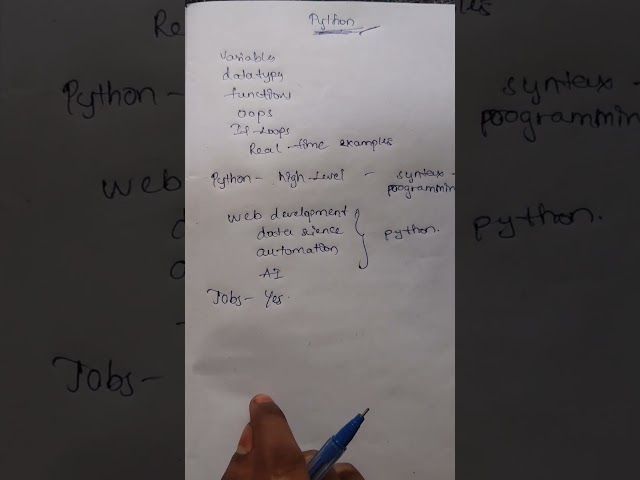 Python
variables
datatype
functions
oops
If-Loops
Real-time examples
Python - high-Level - syntax -
programming
web development
data science
automation
AI
} python.
Jobs - Yes.